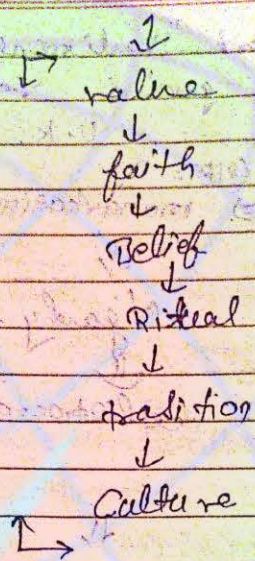 value
↓
faith
↓
Belief
↓
Ritual
↓
tradition
↓
Culture